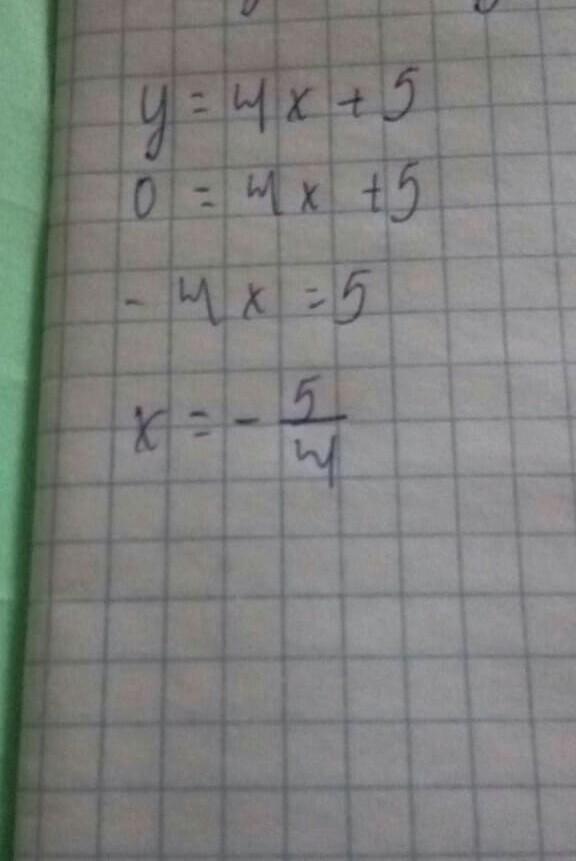 y = 4x + 5
0 = 4x + 5
- 4x = 5
x = - 5/4